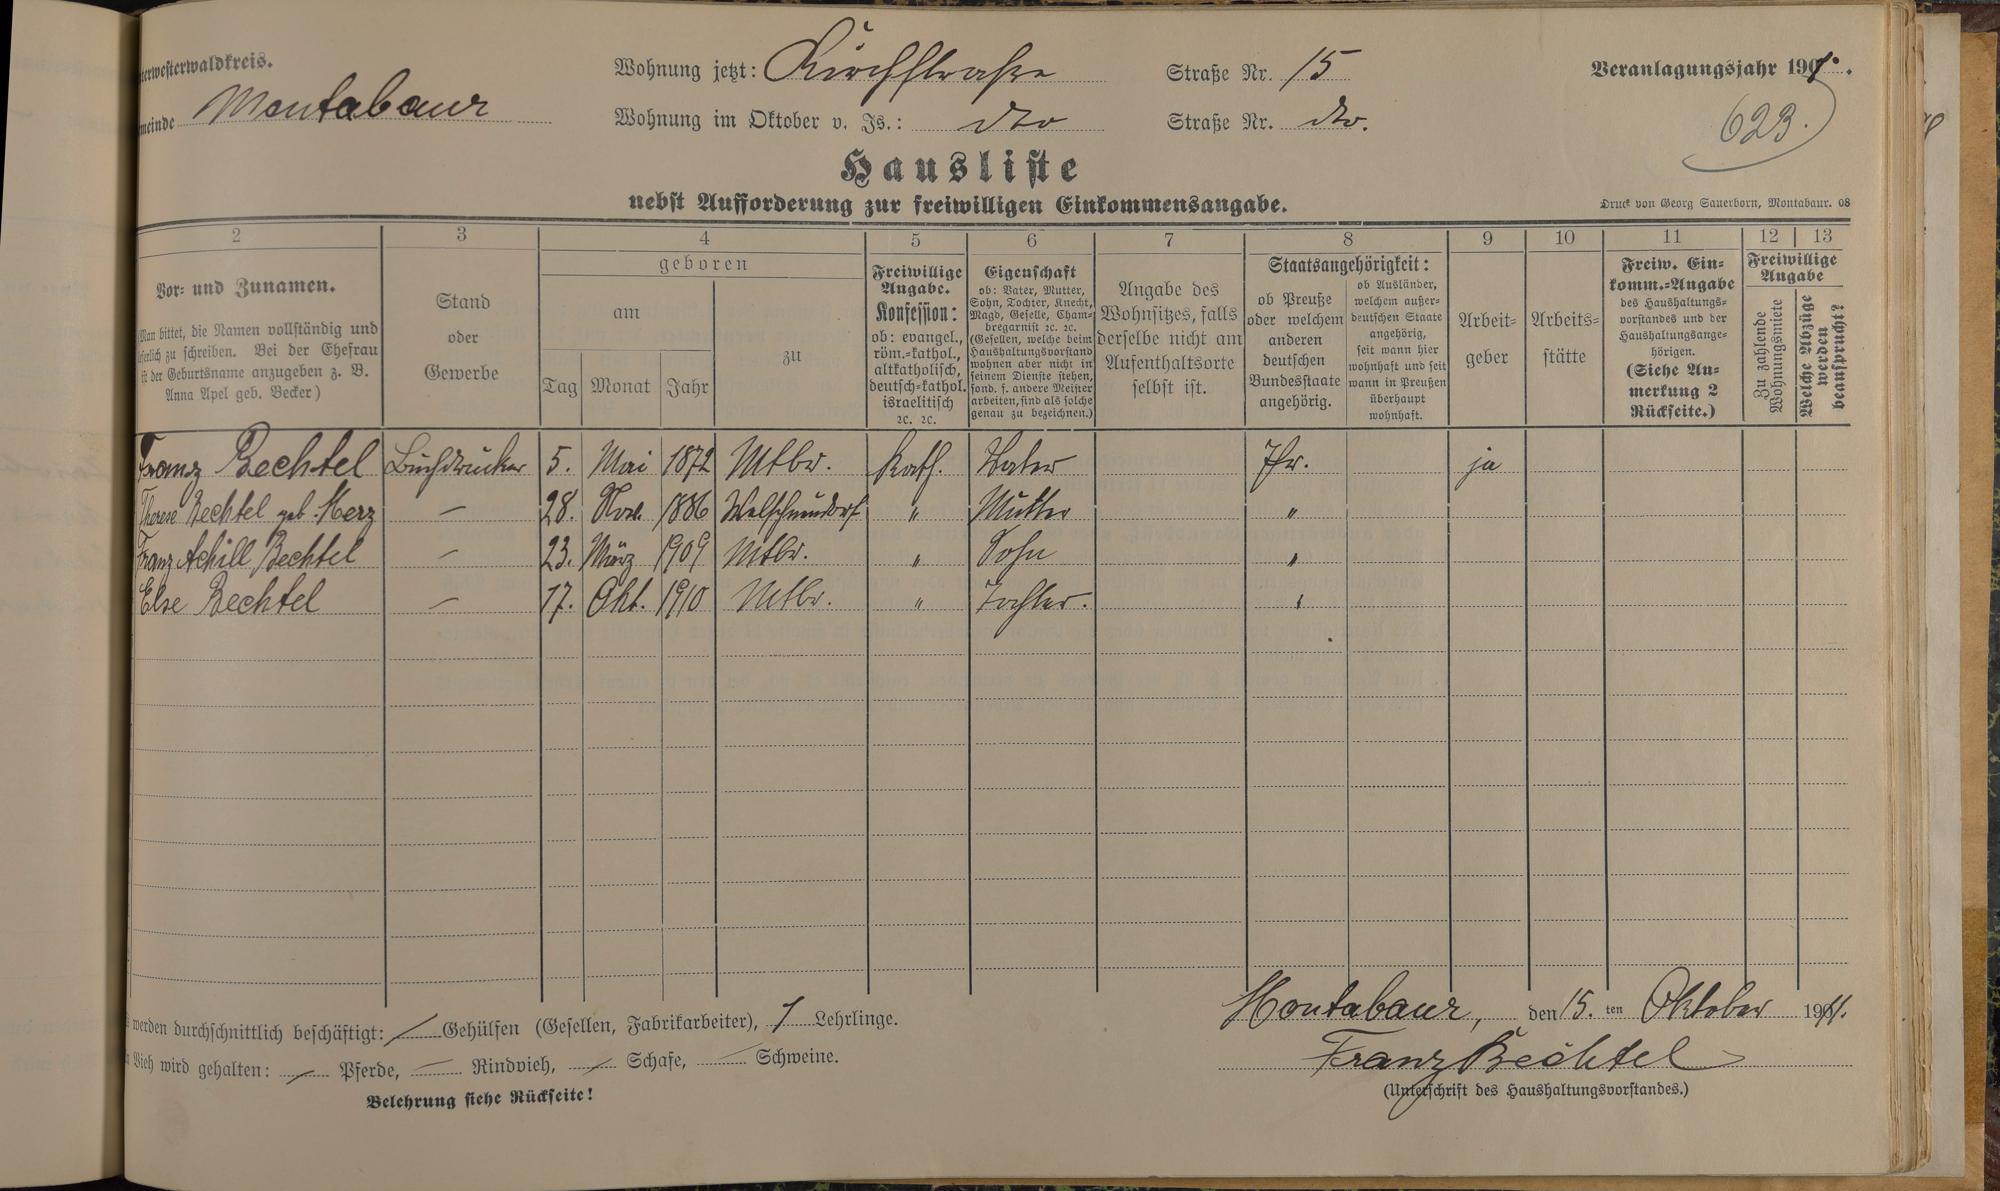 terwesterwaldkreis.
meinde Montabaur
Wohnung jetzt: Kirchstraße Straße Nr. 15
Wohnung im Oktober v. Js.: dto Straße Nr. dto.
Veranlagungsjahr 190
623.
Hausliste
nebst Aufforderung zur freiwilligen Einkommensangabe.
Druck von Georg Sauerborn, Montabaur. 08
2 3 4 5 6 7 8 9 10 11 12 13
Vor- und Zunamen.
(Man bittet, die Namen vollständig und
leserlich zu schreiben. Bei der Ehefrau
ist der Geburtsname anzugeben z. B.
Anna Apel geb. Becker)
Stand
oder
Gewerbe
geboren
am
Tag Monat Jahr
zu
Freiwillige
Angabe.
Konfession:
ob: evangel.,
röm.-kathol.,
altkatholisch,
deutsch-kathol.
israelitisch
ꝛc. ꝛc.
Eigenschaft
ob: Vater, Mutter,
Sohn, Tochter, Knecht,
Magd, Geselle, Cham-
bregarnist ꝛc. ꝛc.
(Gesellen, welche beim
Haushaltungsvorstand
wohnen aber nicht in
seinem Dienste stehen,
sond. f. andere Meister
arbeiten, sind als solche
genau zu bezeichnen.)
Angabe des
Wohnsitzes, falls
derselbe nicht am
Aufenthaltsorte
selbst ist.
Staatsangehörigkeit:
ob Preuße
oder welchem
anderen
deutschen
Bundesstaate
angehörig.
ob Ausländer,
welchem außer-
deutschen Staate
angehörig,
seit wann hier
wohnhaft und seit
wann in Preußen
überhaupt
wohnhaft.
Arbeit-
geber
Arbeits-
stätte
Freiw. Ein-
komm.-Angabe
des Haushaltungs-
vorstandes und der
Haushaltungsange-
hörigen.
(Siehe An-
merkung 2
Rückseite.)
Freiwillige
Angabe
Zu zahlende
Wohnungsmiete
Welche Abzüge
werden
beansprucht?
Franz Bechtel Buchdrucker 5. Mai 1872 Mtbr. Kath. Vater Pr. ja
Therese Bechtel geb. Merz — 28. Nov. 1886 Welschneudorf " Mutter "
Franz Achill Bechtel — 23. März 1909 Mtbr. " Sohn "
Else Bechtel — 17. Okt. 1910 Mtbr. " Tochter. "
werden durchschnittlich beschäftigt: / Gehülfen (Gesellen, Fabrikarbeiter), 1 Lehrlinge.
Vieh wird gehalten: — Pferde, — Rindvieh, — Schafe, — Schweine.
Belehrung siehe Rückseite!
Montabaur, den 15. ten Oktober 1911.
Franz Bechtel
(Unterschrift des Haushaltungsvorstandes.)